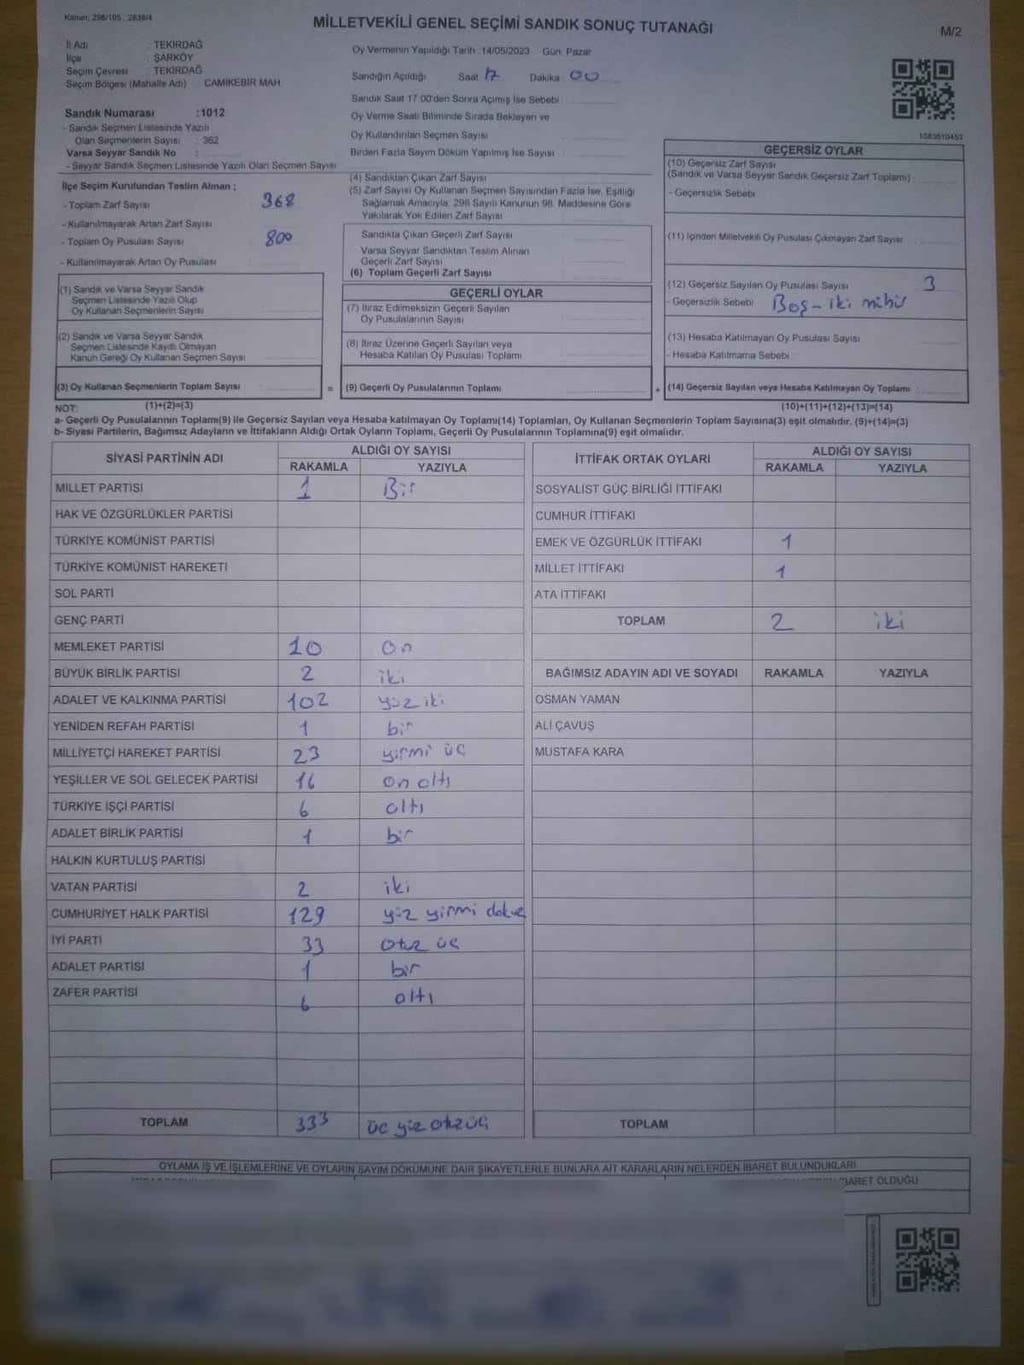 Kanun; 298/105 , 2839/4
MİLLETVEKİLİ GENEL SEÇİMİ SANDIK SONUÇ TUTANAĞI
M/2
İl Adı TEKİRDAĞ
İlçe ŞARKÖY
Seçim Çevresi TEKİRDAĞ
Seçim Bölgesi (Mahalle Adı) CAMİKEBİR MAH
Oy Vermenin Yapıldığı Tarih : 14/05/2023 Gün Pazar
Sandığın Açıldığı Saat 17 Dakika 00
Sandık Saat 17:00'den Sonra Açılmış İse Sebebi
Oy Verme Saati Bitiminde Sırada Bekleyen ve
Oy Kullandırılan Seçmen Sayısı
Birden Fazla Sayım Döküm Yapılmış İse Sayısı
Sandık Numarası :1012
- Sandık Seçmen Listesinde Yazılı
Olan Seçmenlerin Sayısı : 362
Varsa Seyyar Sandık No
- Seyyar Sandık Seçmen Listesinde Yazılı Olan Seçmen Sayısı
İlçe Seçim Kurulundan Teslim Alınan ;
- Toplam Zarf Sayısı 368
- Kullanılmayarak Artan Zarf Sayısı
- Toplam Oy Pusulası Sayısı 800
- Kullanılmayarak Artan Oy Pusulası
(1) Sandık ve Varsa Seyyar Sandık
Seçmen Listesinde Yazılı Olup
Oy Kullanan Seçmenlerin Sayısı
(2) Sandık ve Varsa Seyyar Sandık
Seçmen Listesinde Kayıtlı Olmayan
Kanun Gereği Oy Kullanan Seçmen Sayısı
(3) Oy Kullanan Seçmenlerin Toplam Sayısı
(4) Sandıktan Çıkan Zarf Sayısı
(5) Zarf Sayısı Oy Kullanan Seçmen Sayısından Fazla İse, Eşitliği
Sağlamak Amacıyla, 298 Sayılı Kanunun 98. Maddesine Göre
Yakılarak Yok Edilen Zarf Sayısı
Sandıkta Çıkan Geçerli Zarf Sayısı
Varsa Seyyar Sandıktan Teslim Alınan
Geçerli Zarf Sayısı
(6) Toplam Geçerli Zarf Sayısı
GEÇERLİ OYLAR
(7) İtiraz Edilmeksizin Geçerli Sayılan
Oy Pusulalarının Sayısı
(8) İtiraz Üzerine Geçerli Sayılan veya
Hesaba Katılan Oy Pusulası Toplamı
= (9) Geçerli Oy Pusulalarının Toplamı
GEÇERSİZ OYLAR
(10) Geçersiz Zarf Sayısı
(Sandık ve Varsa Seyyar Sandık Geçersiz Zarf Toplamı)
- Geçersizlik Sebebi
(11) İçinden Milletvekili Oy Pusulası Çıkmayan Zarf Sayısı
(12) Geçersiz Sayılan Oy Pusulası Sayısı 3
- Geçersizlik Sebebi Boş - iki mühür
(13) Hesaba Katılmayan Oy Pusulası Sayısı
- Hesaba Katılmama Sebebi
+ (14) Geçersiz Sayılan veya Hesaba Katılmayan Oy Toplamı
NOT: (1)+(2)=(3) (10)+(11)+(12)+(13)=(14)
a- Geçerli Oy Pusulalarının Toplamı(9) ile Geçersiz Sayılan veya Hesaba katılmayan Oy Toplamı(14) Toplamları, Oy Kullanan Seçmenlerin Toplam Sayısına(3) eşit olmalıdır. (9)+(14)=(3)
b- Siyasi Partilerin, Bağımsız Adayların ve İttifakların Aldığı Ortak Oyların Toplamı, Geçerli Oy Pusulalarının Toplamına(9) eşit olmalıdır.
SİYASİ PARTİNİN ADI ALDIĞI OY SAYISI
RAKAMLA YAZIYLA
MİLLET PARTİSİ 1 Bir
HAK VE ÖZGÜRLÜKLER PARTİSİ
TÜRKİYE KOMÜNİST PARTİSİ
TÜRKİYE KOMÜNİST HAREKETİ
SOL PARTİ
GENÇ PARTİ
MEMLEKET PARTİSİ 10 On
BÜYÜK BİRLİK PARTİSİ 2 iki
ADALET VE KALKINMA PARTİSİ 102 yüz iki
YENİDEN REFAH PARTİSİ 1 bir
MİLLİYETÇİ HAREKET PARTİSİ 23 yirmi üç
YEŞİLLER VE SOL GELECEK PARTİSİ 16 on altı
TÜRKİYE İŞÇİ PARTİSİ 6 altı
ADALET BİRLİK PARTİSİ 1 bir
HALKIN KURTULUŞ PARTİSİ
VATAN PARTİSİ 2 iki
CUMHURİYET HALK PARTİSİ 129 yüz yirmi dokuz
İYİ PARTİ 33 Otuz üç
ADALET PARTİSİ 1 bir
ZAFER PARTİSİ 6 altı
TOPLAM 333 üç yüz otuz üç
İTTİFAK ORTAK OYLARI ALDIĞI OY SAYISI
RAKAMLA YAZIYLA
SOSYALİST GÜÇ BİRLİĞİ İTTİFAKI
CUMHUR İTTİFAKI
EMEK VE ÖZGÜRLÜK İTTİFAKI 1
MİLLET İTTİFAKI 1
ATA İTTİFAKI
TOPLAM 2 iki
BAĞIMSIZ ADAYIN ADI VE SOYADI RAKAMLA YAZIYLA
OSMAN YAMAN
ALİ ÇAVUŞ
MUSTAFA KARA
TOPLAM
OYLAMA İŞ VE İŞLEMLERİNE VE OYLARIN SAYIM DÖKÜMÜNE DAİR ŞİKAYETLERLE BUNLARA AİT KARARLARIN NELERDEN İBARET BULUNDUKLARI
İBARET OLDUĞU